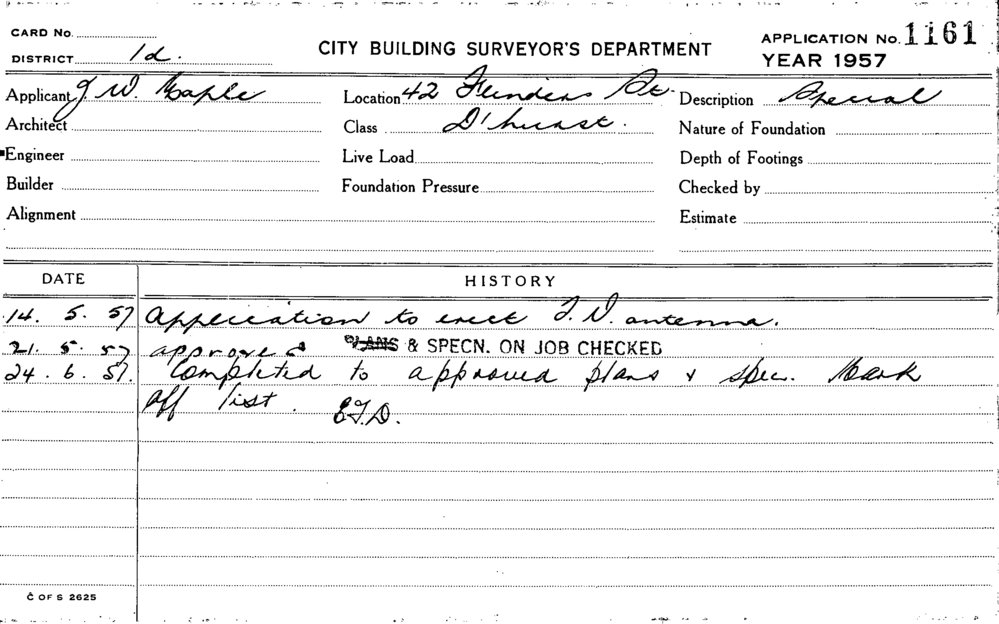 CARD No.
DISTRICT 1d.
CITY BUILDING SURVEYOR'S DEPARTMENT
APPLICATION No. 1161
YEAR 1957
Applicant J. W. Maple Location 42 Flinders St. Description Special
Architect Class D'hurst. Nature of Foundation
Engineer Live Load Depth of Footings
Builder Foundation Pressure Checked by
Alignment Estimate
DATE HISTORY
14. 5. 57 Application to erect T.V. antenna.
21. 5. 57 approved PLANS & SPECN. ON JOB CHECKED
24. 6. 57. Completed to approved plans & spec. Mark
off list. E.J.D.
C OF S 2625